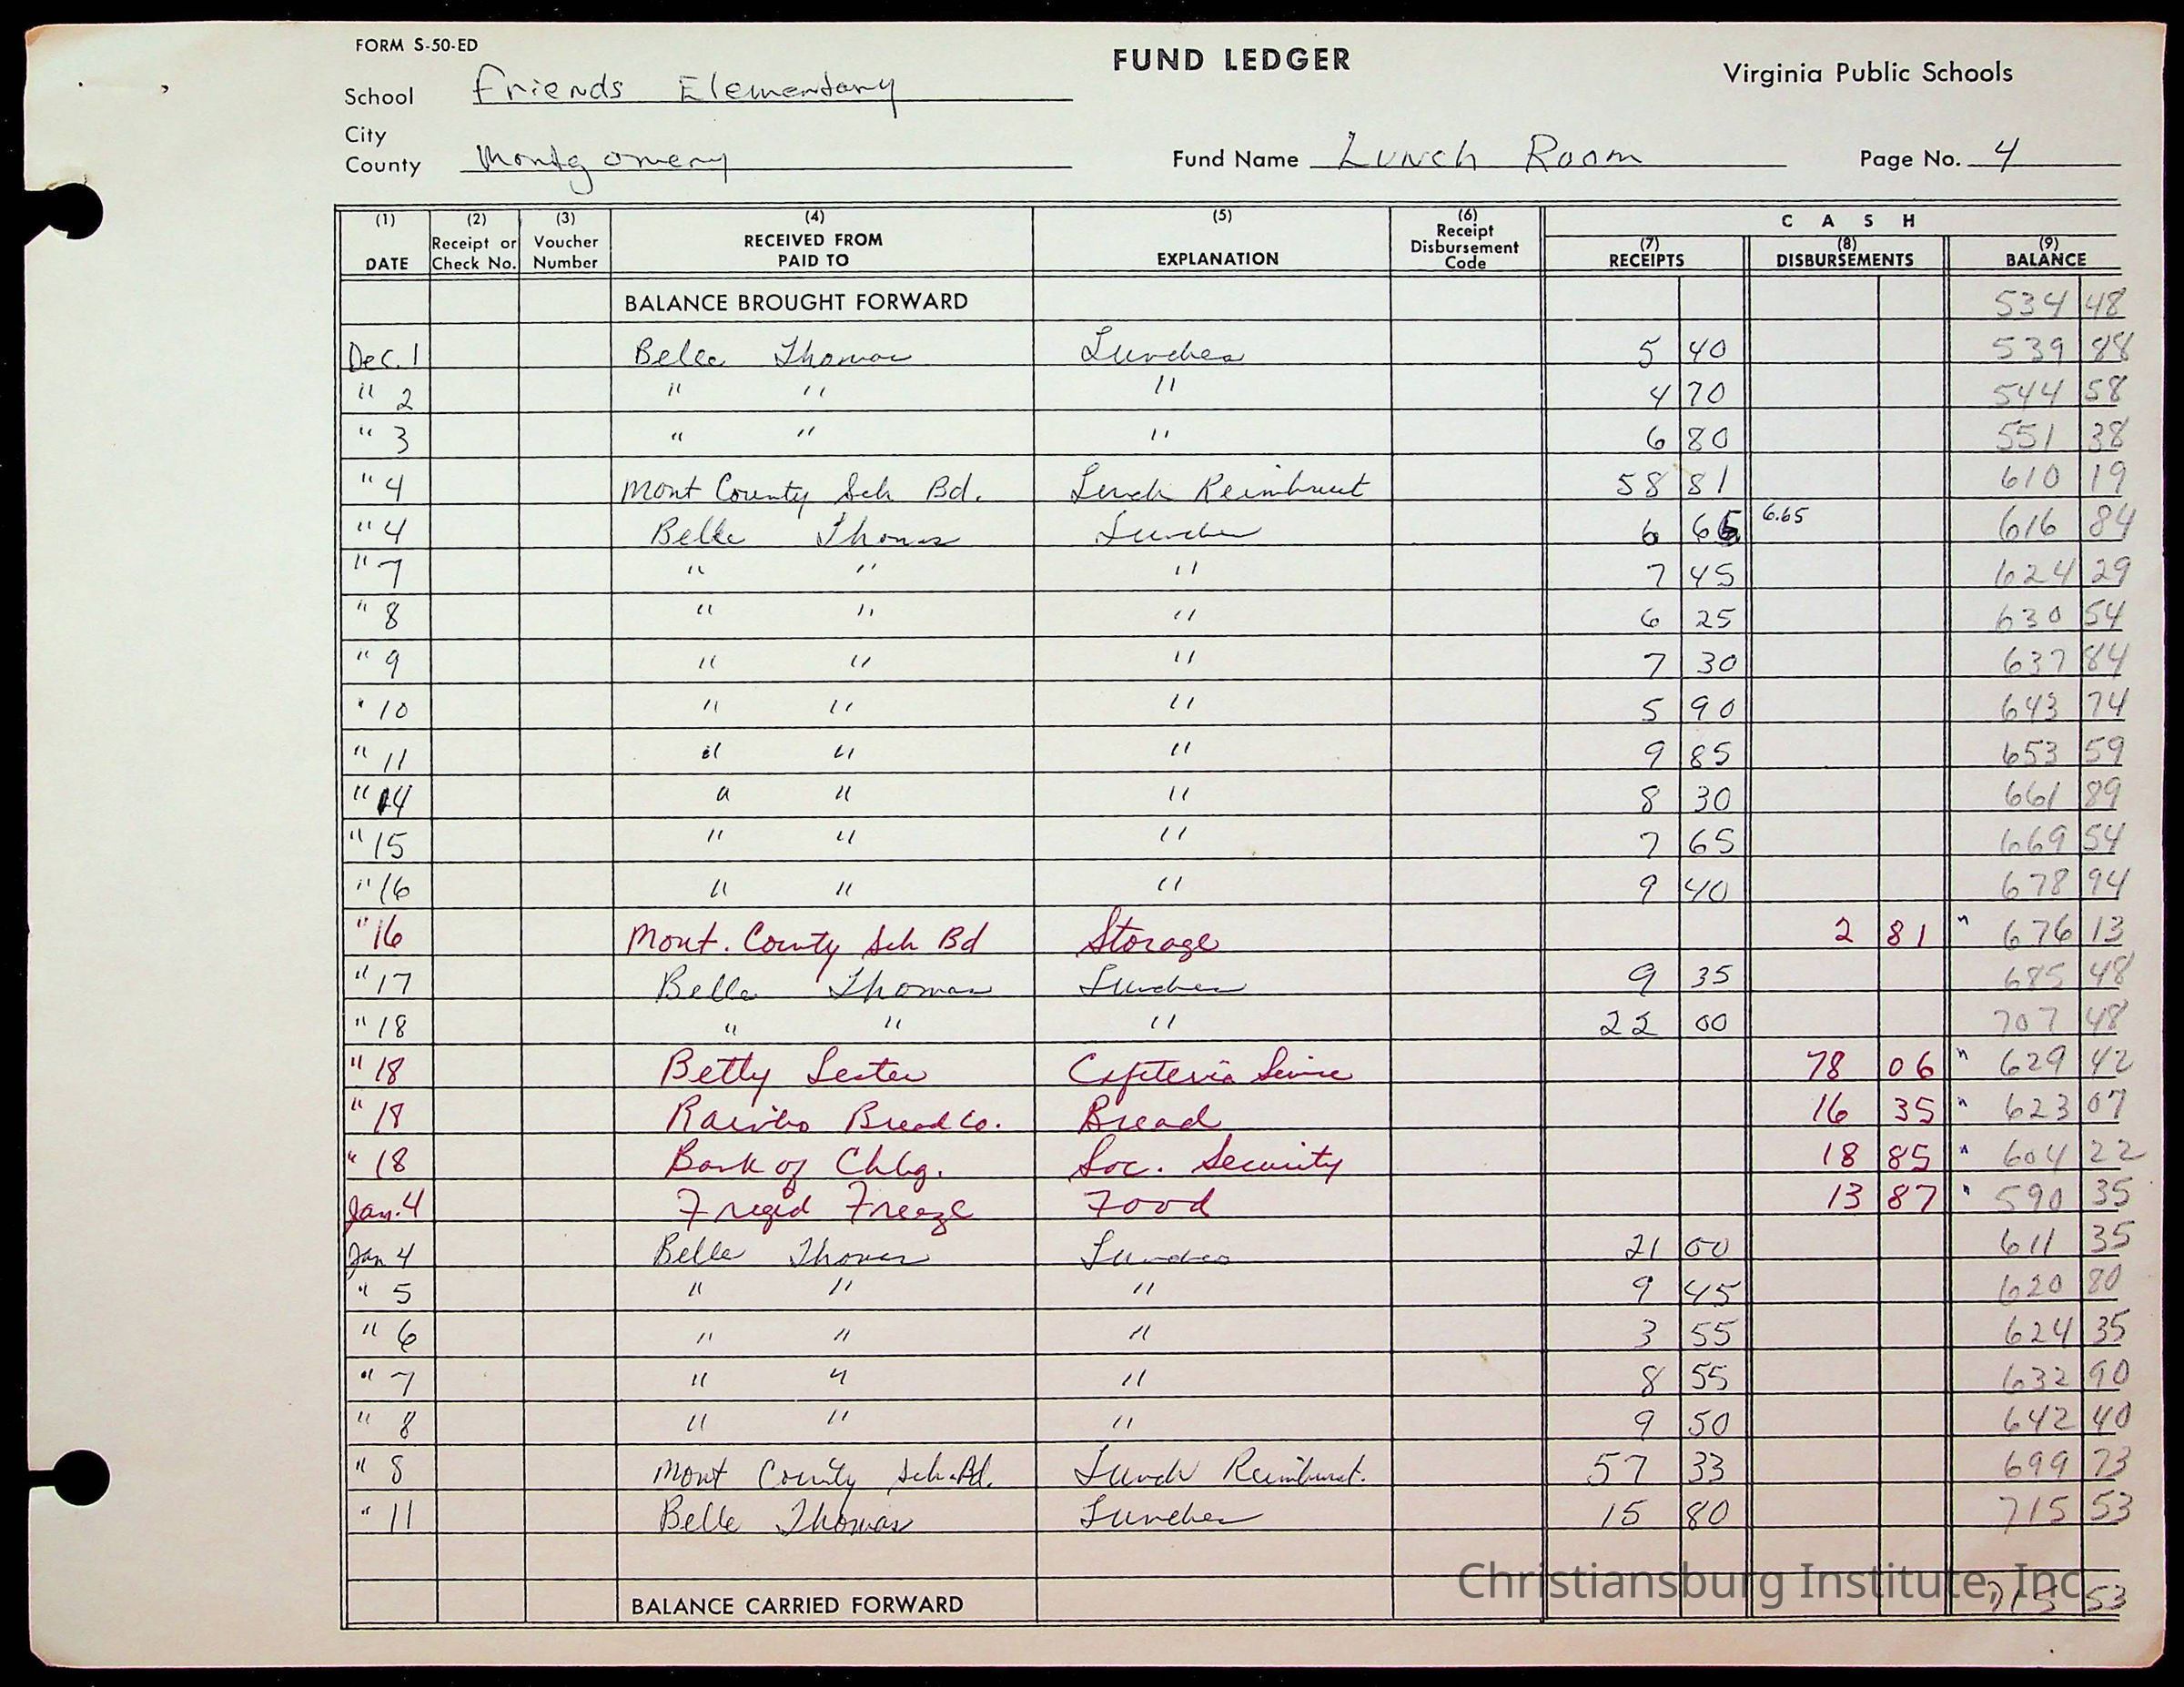 FORM S-50-ED
FUND LEDGER
Virginia Public Schools
School Friends Elementary
City
County Montgomery Fund Name Lunch Room Page No. 4
(1) (2) (3) (4) (5) (6) C A S H
DATE Receipt or Check No. Voucher Number RECEIVED FROM PAID TO EXPLANATION Receipt Disbursement Code (7) RECEIPTS (8) DISBURSEMENTS (9) BALANCE
BALANCE BROUGHT FORWARD 534 48
Dec. 1 Belle Thomas Lunches 5 40 539 88
" 2 " " " 4 70 544 58
" 3 " " " 6 80 551 38
" 4 Mont County Sch Bd. Lunch Reimburst 58 81 610 19
" 4 Belle Thomas Lunches 6 65 6.65 616 84
" 7 " " " 7 45 624 29
" 8 " " " 6 25 630 54
" 9 " " " 7 30 637 84
" 10 " " " 5 90 643 74
" 11 " " " 9 85 653 59
" 14 " " " 8 30 661 89
" 15 " " " 7 65 669 54
" 16 " " " 9 40 678 94
" 16 Mont. County Sch Bd Storage 2 81 " 676 13
" 17 Belle Thomas Lunches 9 35 685 48
" 18 " " " 22 00 707 48
" 18 Betty Lester Cafeteria Service 78 06 " 629 42
" 18 Rainbo Bread Co. Bread 16 35 " 623 07
" 18 Bank of Chbg. Soc. Security 18 85 " 604 22
Jan. 4 Frigid Freeze Food 13 87 " 590 35
Jan 4 Belle Thomas Lunches 21 00 611 35
" 5 " " " 9 45 620 80
" 6 " " " 3 55 624 35
" 7 " " " 8 55 632 90
" 8 " " " 9 50 642 40
" 8 Mont County Sch. Bd. Lunch Reimburst. 57 33 699 73
" 11 Belle Thomas Lunches 15 80 715 53
BALANCE CARRIED FORWARD 715 53
Christiansburg Institute, Inc.